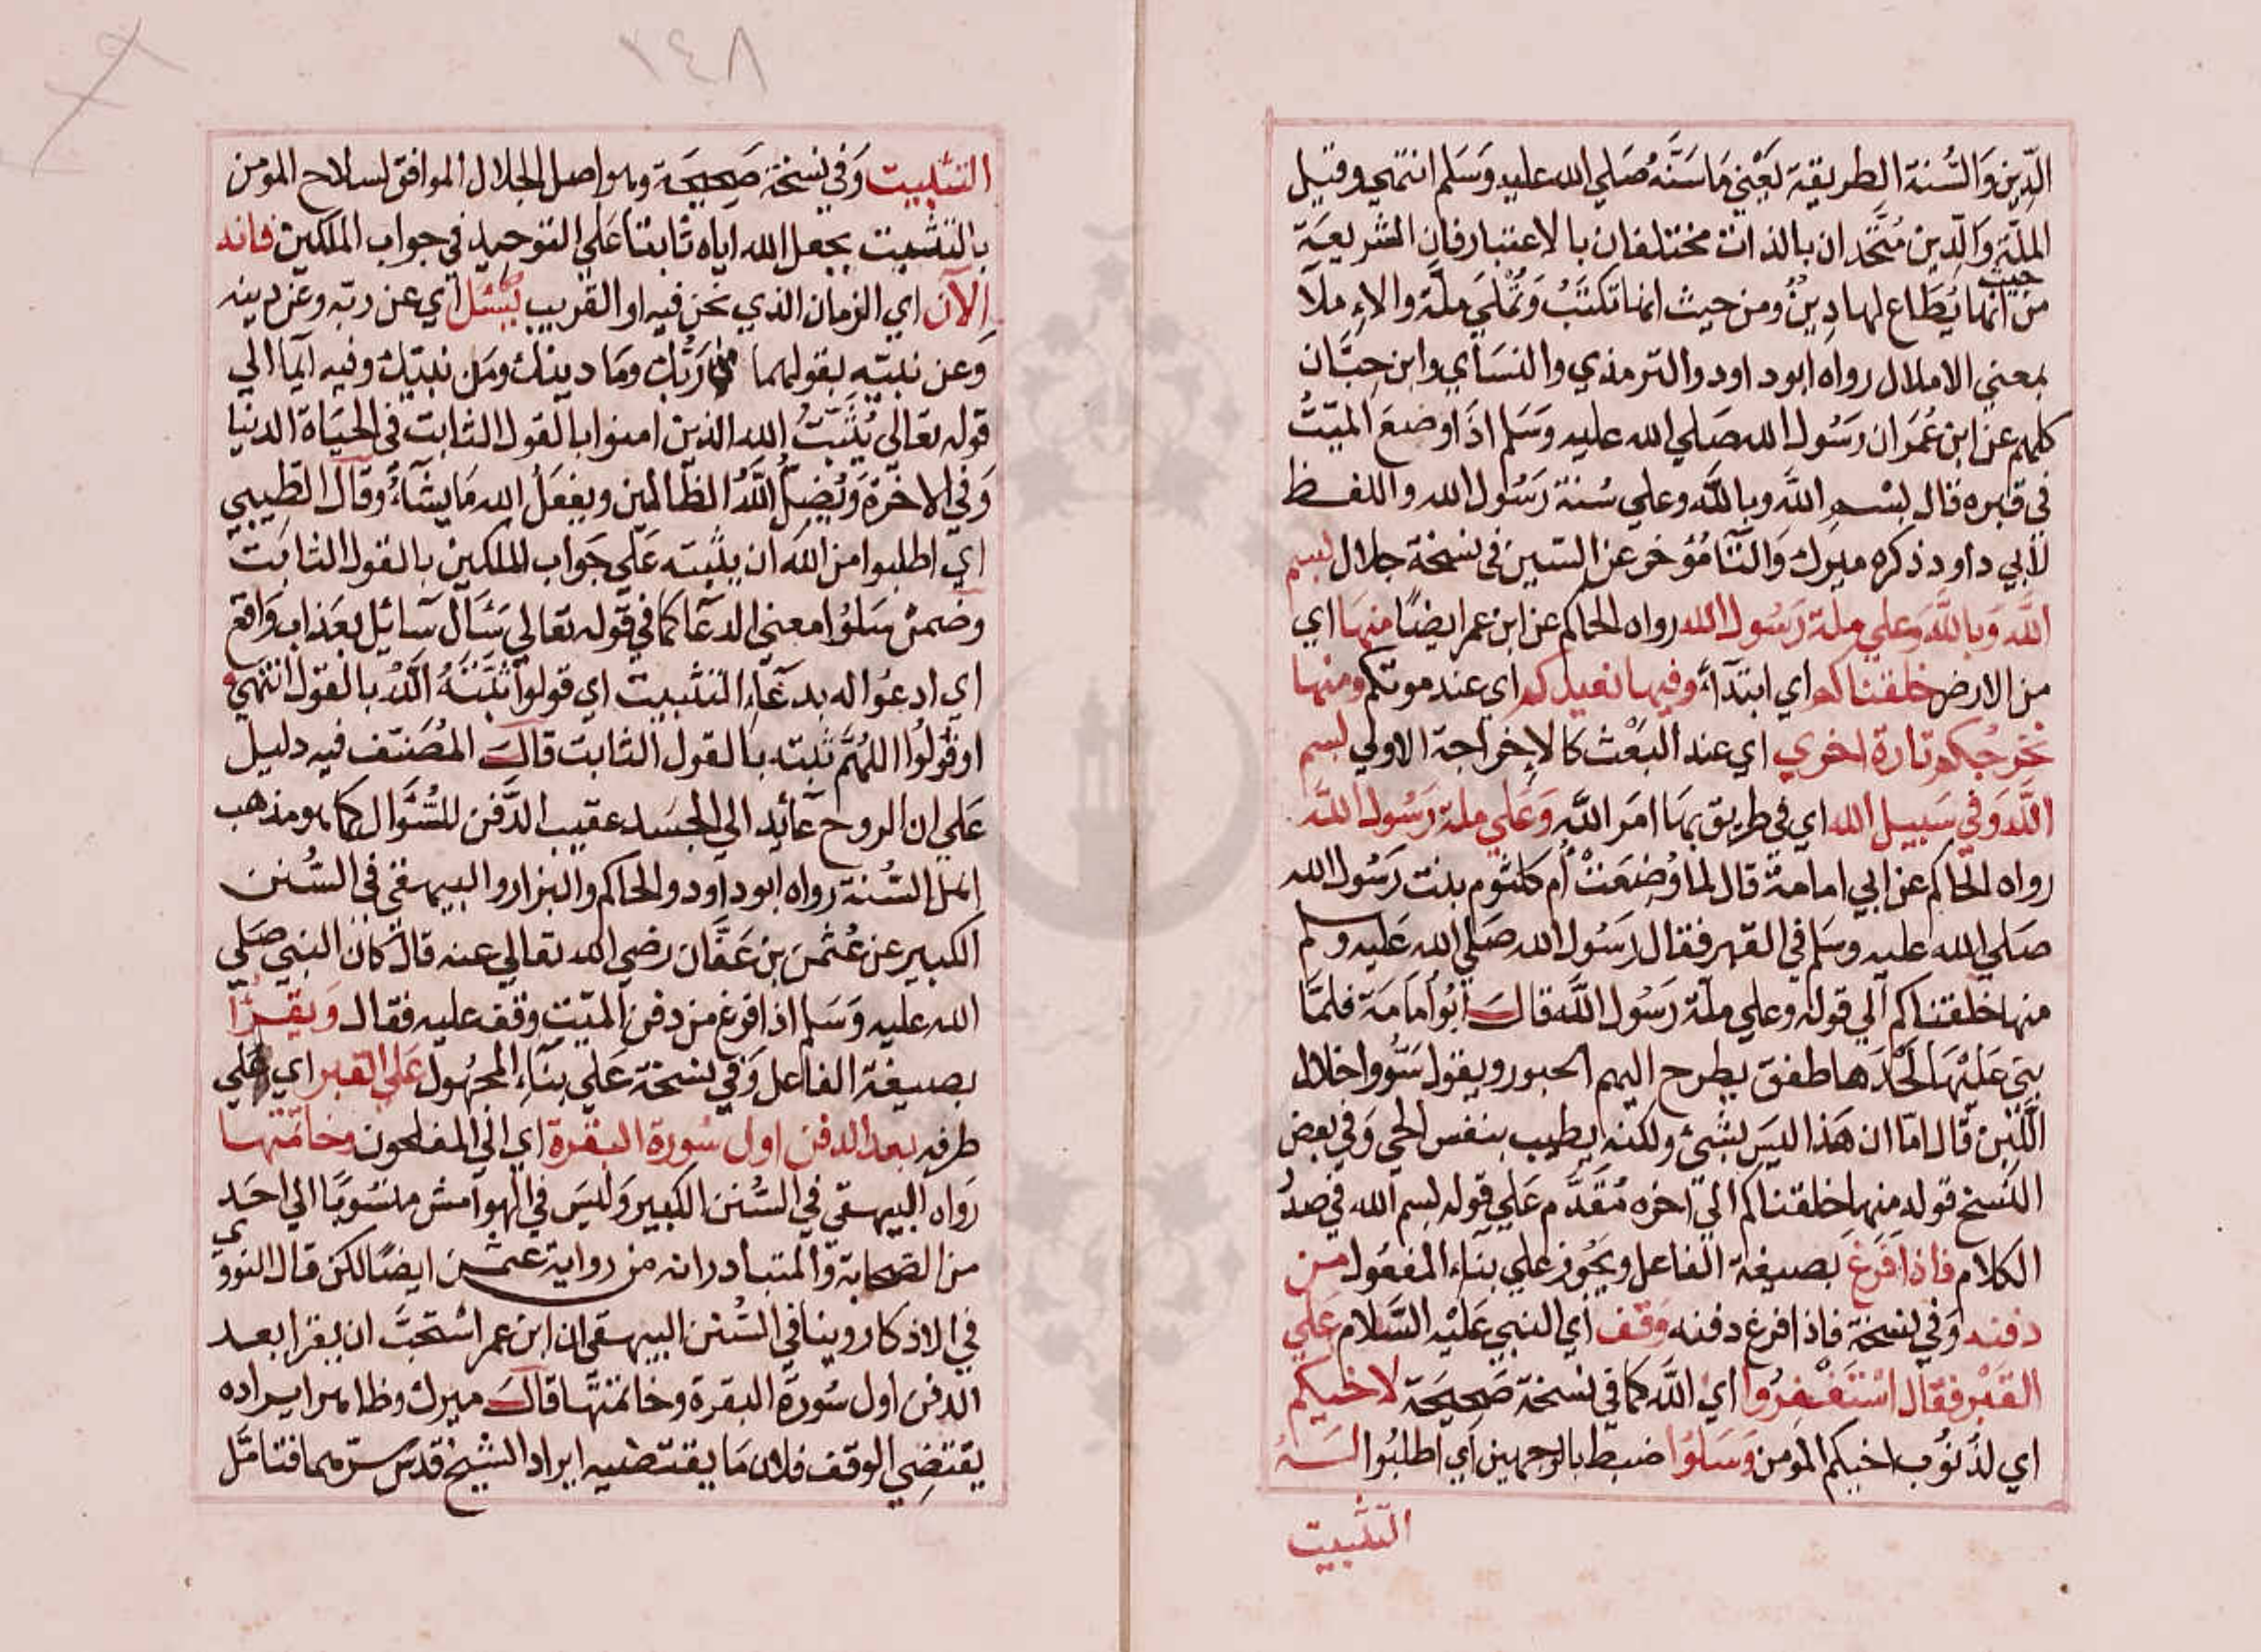 الدّين والسُّنة الطريقة يَعْني مَا سَنَّهُ صَلي الله عليه وَسَلم انتهي وقيل
الملّة وَالدّين مُتَّحدان بالذات مختلفان بالاعتبار فان الشريعَة
من حيث انها يُطَاع لها دِينٌ ومن حيث انها تكتَبُ وَتُملَي ملّة والاملآ
بمعني الاملال رواه ابو داود والترمذي والنسَاي وابن حِبَّان
كلهم عن ابن عُمَر ان رسُول الله صَلي الله عليه وَسَلم اذا وضعَ الميّتُ
في قبره قال بسْم اللهِ وباللهِ وعلي سُنة رَسُول الله واللفظ
لابي داود ذكره ميرك وَالتَّا مُؤخر عن السّين في نسخة جلال بسم
الله وَباللَّه وَعلي ملة رَسُول الله رواه الحاكم عن ابن عمر ايضًا منهَا اي
من الارض خلقناكم اي ابتدآءً وفيها نعيدكم اي عند موتكم ومنها
نخرجُكم تارة اخري اي عند البَعْث كالاِخراجة الاولي بسم
اللّه وَفي سَبيل الله اي في طريق بمَا امَر اللَّه وَعَلي ملة رَسُول اللّه
رواه الحَاكم عن ابي امامة قال لما وُضِعَتْ أم كلثوم بنت رَسُول الله
صَلي الله عليه وسَلم في القبر فقال رَسُول الله صَلي الله عَليه وسلم
منها خلقناكم الي قوله وعلي ملّة رَسُول اللَّه قالَ ابُو أمَامَة فلمَّا
بني عَليْهَا لَحْدَها طفق يطرح اليهم الحبور ويقول سَوُّوا خلال
اللَّبِن قال امّا ان هَذا ليسَ بشئ ولكنه يطيب بنفس الحي وَفي بعض
النسخ قوله منها خلقناكم الي اخره مُقَدَّم عَلي قوله بسم الله في صدُ
الكلام فاذا فَرغَ بصيغة الفاعل ويجُوز علي بناء المفعُول من
دفنه وَفي نسخة فاذا فرغ دفنه وَقف أي النبي عَليْه السَّلام عَلي
القبْر فقال اسْتَغْفِرُوا اي اللَّه كما في نسخة صَحِيحَة لاخيكم
اي لذنُوب اخيكم المؤمن وَسَلوُا ضبط بالوجهين اي اطلبُوا لَهُ
التثبيت
١٤٨
التثبيت وَفي نسخة صَحِيحَة وهو اصل الجلال الموافق لسلاح المومن
بالتثبيت بجعل الله اياه ثابتا عَلي التوحيد في جواب الملكين فانه
الآن اي الزمان الذي نحن فيه او القريب يُسْئل أي عن ربّه وعن دينه
وَعن نبيّه بقولهما من رَبُّك ومَا دينك ومَن نبيّك وفيه ايما الي
قوله تعالي يُثَبِّتُ الله الذين امنوا بالقول الثابت في الحيَاة الدنيا
وَفي الاخرَة وَيُضِلُّ اللَّهُ الظالمين ويفعَلُ الله مَا يشَآءُ وقالَ الطّيبي
اي اطلبوا من الله ان يثبّته عَلي جَواب الملكين بالقول الثابت
وَضمن سَلوُا معني الدعَا كما في قوله تعالي سَئَالَ سآئيل بعَذاب وَاقع
اي ادعُوا له بدعَآءِ التثبيت اي قولوا ثَبّتَهُ اللَّهُ بالقول انتهي
او قوُلوُا اللهُمَّ ثبته بالقول الثابت قالَ المُصَنّف فيه دليل
عَلي ان الروح عآئد الي الجسَد عقيب الدَّفن للسُّؤال كما هو مذهب
اهل السُّنة رواه ابو داود والحاكم والبزار والبيهقي في السُّنن
الكبير عن عُثمن بن عَفَّان رضي الله تعالي عنه قال كان النبي صَلي
الله عليه وَسَلم اذا فرغ من دفن الميّت وقف عليه فقال وَيقرأ
بصيغة الفاعل وَفي نسخة عَلي بنَاءِ المجهُول عَلي القبر اي علي
طرفه بعد الدفن اول سُورة البقرة اي الي المفلحون وخاتمتها
رَواه البيهقي في السُّنن الكبير وَليسَ في الهوامش منسُوبًا الي احَد
من الصّحابة وَالمتبادر انه من رواية عثمٰن ايضًا لكن قال النووي
في الاذكار روينا في السُّنن البيهقي ان ابن عمر اسْتحبَّ ان يقرا بعد
الدفن اول سُورة البقرة وخاتمتها قالَ ميرك وظاهر ايراده
يقتضي الوقف فلان مَا يقتضيه ايراد الشيخ قدسَ سرّهما فتامّل